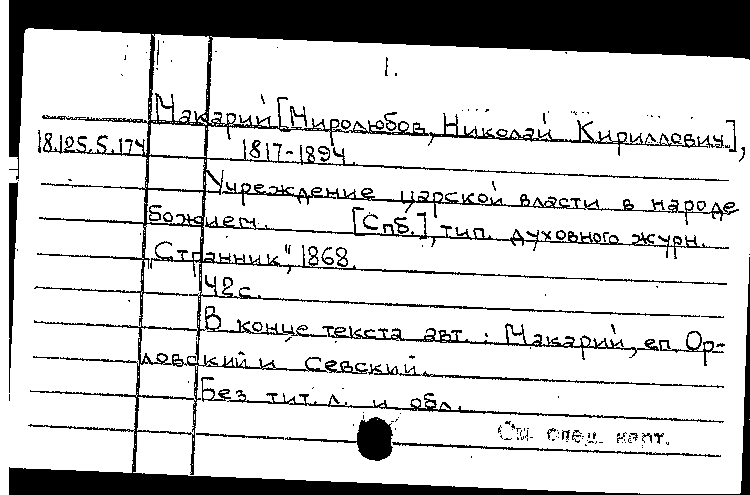 1.
Макарий [Миролюбов, Николай Кириллович],
18.125.5.174 1817-1894.
Учреждение царской власти в народе
божием. [Спб.], тип. духовного журн.
"Странник", 1868.
42 с.
В конце текста авт.: Макарий, еп. Ор-
ловский и Севский.
Без тит. л. и обл.
См. спец. карт.